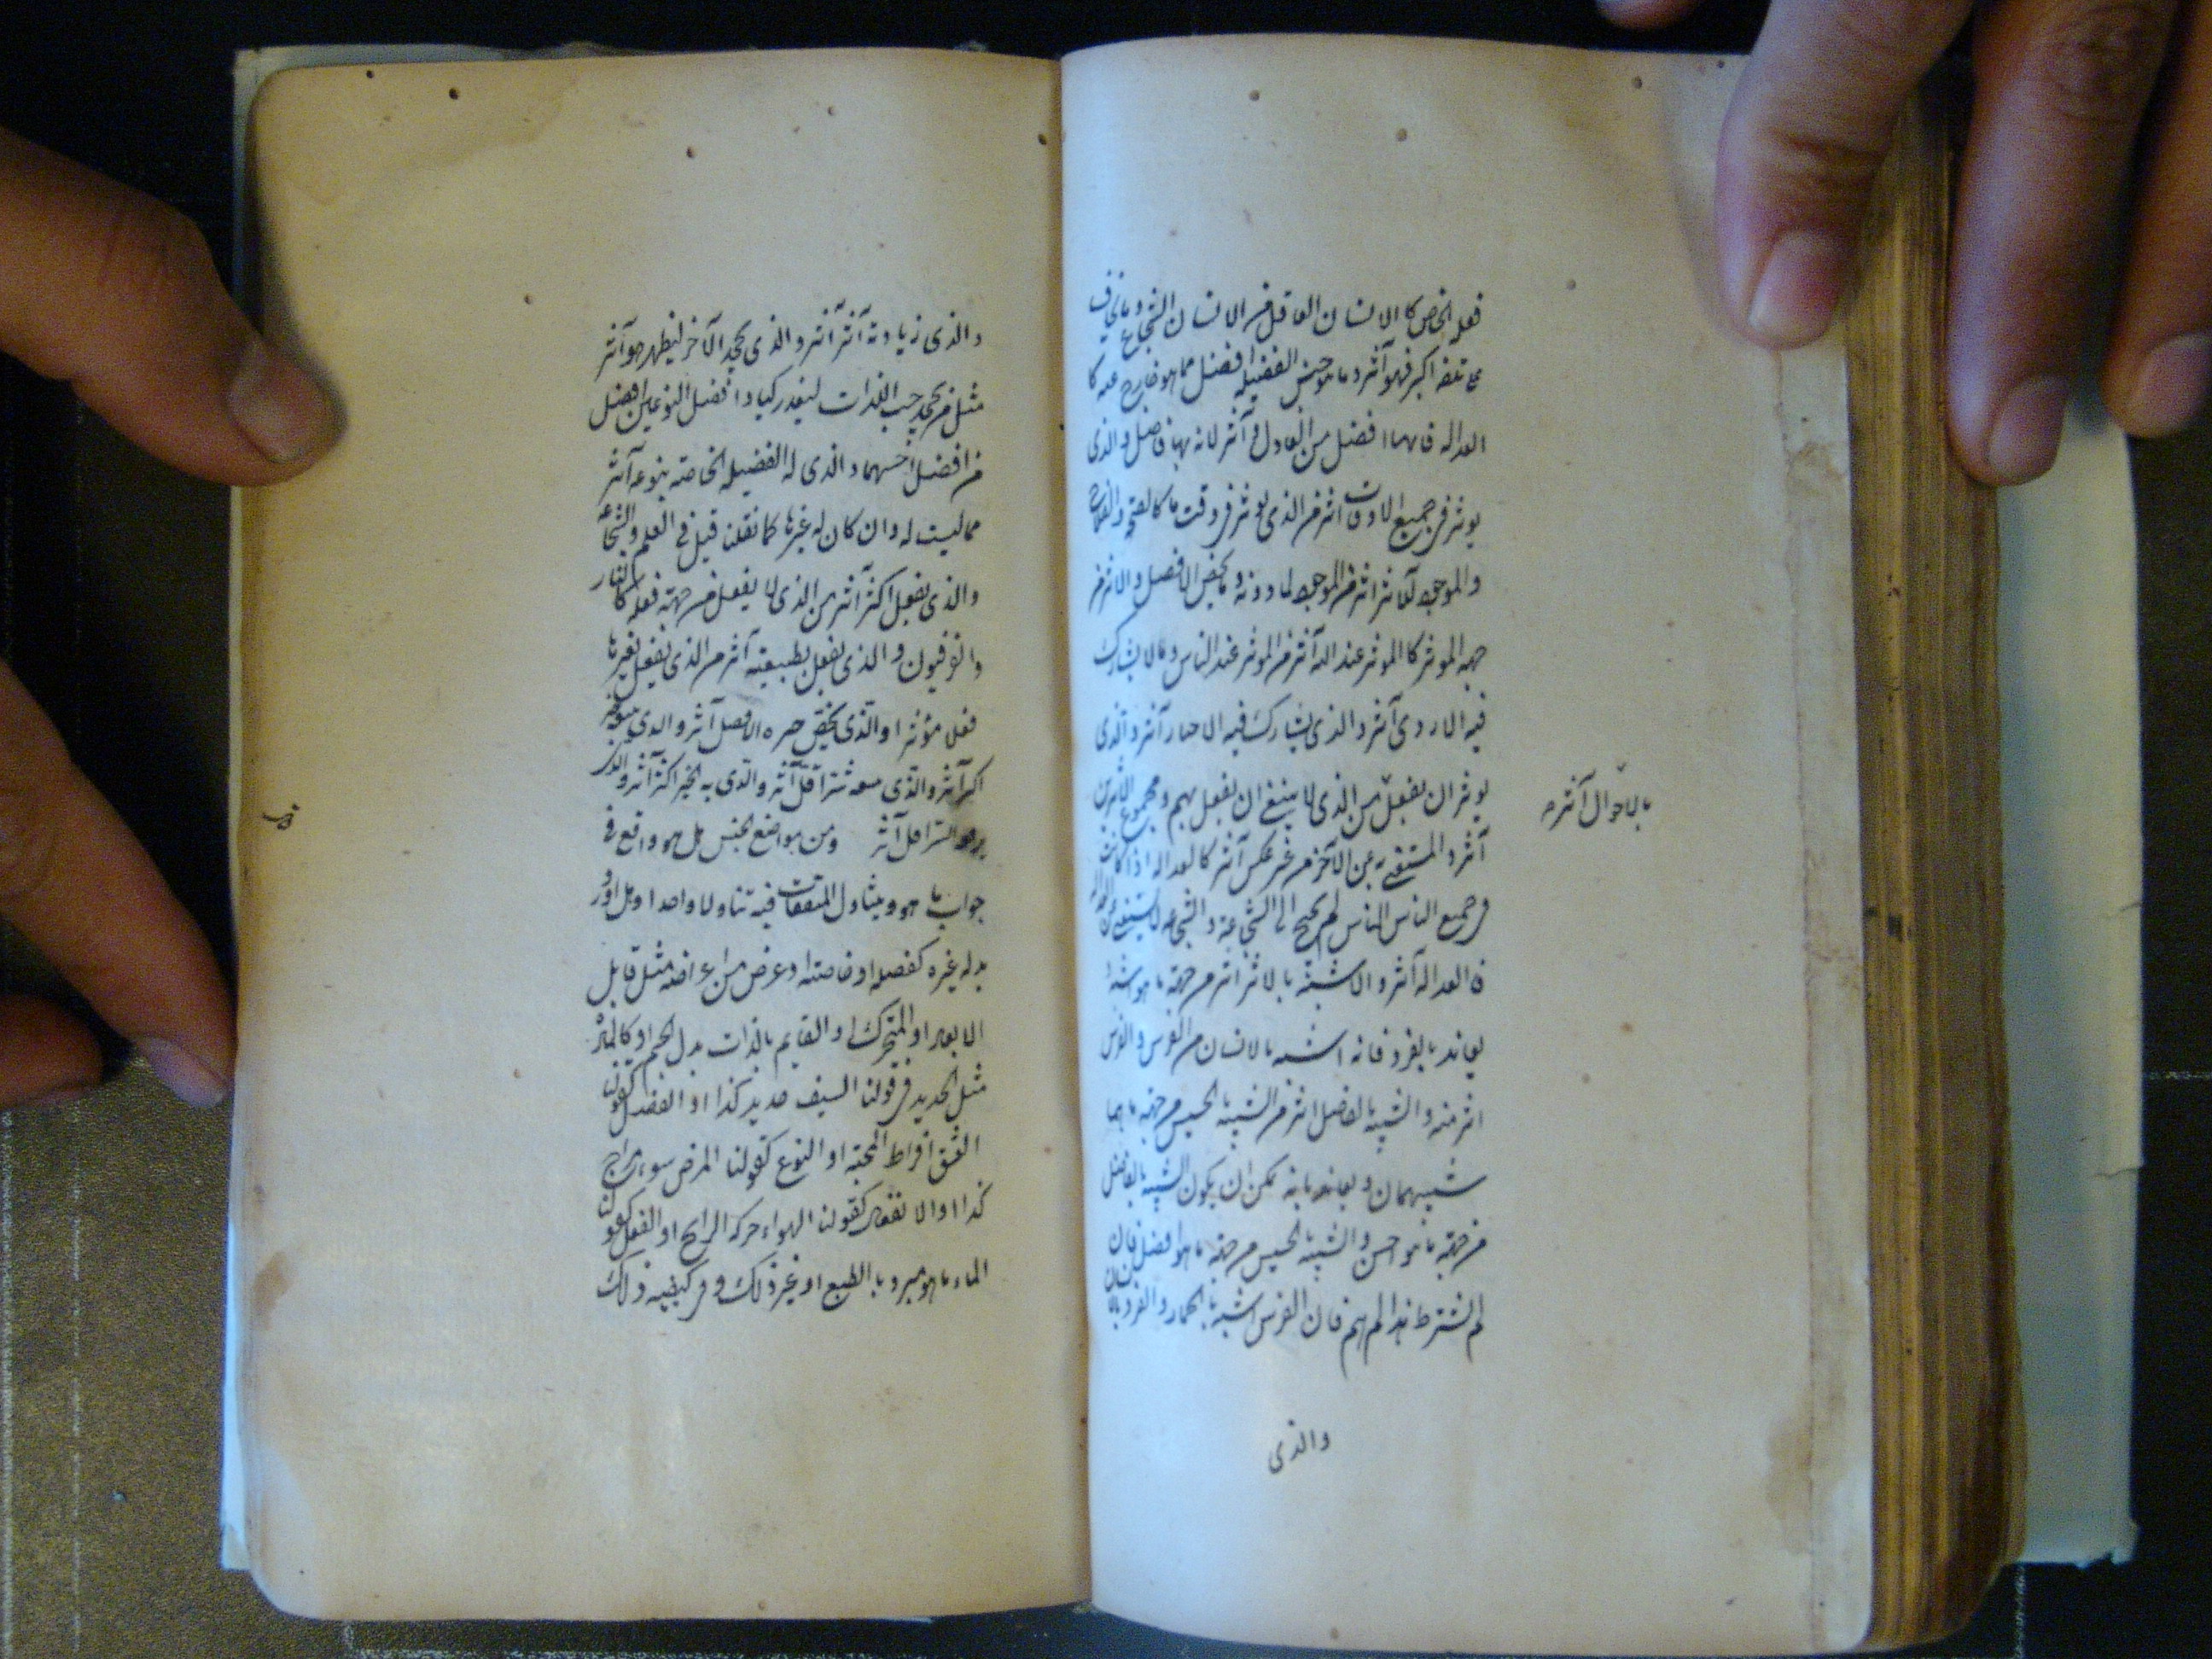 فعله الخاص كالانسان العاقل من الانسان الشجاع وما في
اكبر فهو آثر وما هو جنس الفضيله افضل مما هو خارج عنه كا
العداله فانها افضل من العادل و آثر لانه بها فاضل والذى
يوثر فى جميع الاوقات اثر من الذى يوثر فى وقت ما كالصحة و
والموجود للآثر اثر من الموجود لما دونه وما يخص الافضل والاثر من
جهة الموثر كالموثر عند الله آثر من الموثر عند الناس وما لا يشارك
فيه الاردى آثر والذى يشارك فيه الاخيار آثر والذى
يوثر ان يفعل من الذى لا ينبغى ان يفعل بهم ومجموع الاثرين
بالاحوال آثر
آثر والمستغنى به عن الآخر من غير عكس آثر كالعداله اذا كانت
فى جميع الناس لم يحتج الى الشجاعة والشجاعه لا يستغنى عن العداله
فالعداله آثر والاشبه بالاثر اثر من جهة ما هو اشبه
يعاند بالقرد فانه اشبه بالانسان من الفرس والفرس
اثر منه والشبيه بالفاضل اثر من الشبيه بالخسيس من جهة ما هما
شبيهان ويعاند بانه يمكن ان يكون الشبيه بالفاضل
من جهة ما هو اخس والشبيه بالخسيس من جهة ما هو افضل فان
لم نشترط هذا لم يتم فان الفرس اشبه بالحمار والقرد بالانسان
والذى
والذى زيادته آثر آثر والذى يجحد الآخر ليظهر هو آثر
مثل من يجحد حب اللذات وافضل النوعين افضل
من افضل اخسهما والذى له الفضيله الخاصة بنوعه آثر
مما ليست له وان كان له غيرها كما قيل فى العلم والشجاعه
والذى يفعل اكثر آثر من الذى لا يفعل من جهة فعله كالنار
والفرفيون والذى يفعل بطبيعته آثر من الذى يفعل بغيرها
فعلا مؤثرا والذى يخص الافضل آثر والذى
اكبر آثر والذى معه شر اقل آثر والذى به الخير اكثر آثر والذى
الشر اقل آثر ومن مواضع الجنس هل هو واقع فى
جواب ما هو ويتناول المتفقات فيه تناولا واحدا وهل اورد
بدله غيره كفصله او خاصته او عرض من اعراضه مثل قابل
الابعاد او المتحرك او القايم بالذات بدل الجسم او كالمادة
مثل الحديد فى قولنا السيف حديد كذا او الفصل كقولنا
العشق افراط المحبة او النوع كقولنا المرض سوء مزاج
كذا او الانفعال كقولنا الهواء حركة الريح او الفعل كقولنا
الماء ما هو مبرد بالطبع او غير ذلك وفى كيفيه ذلك